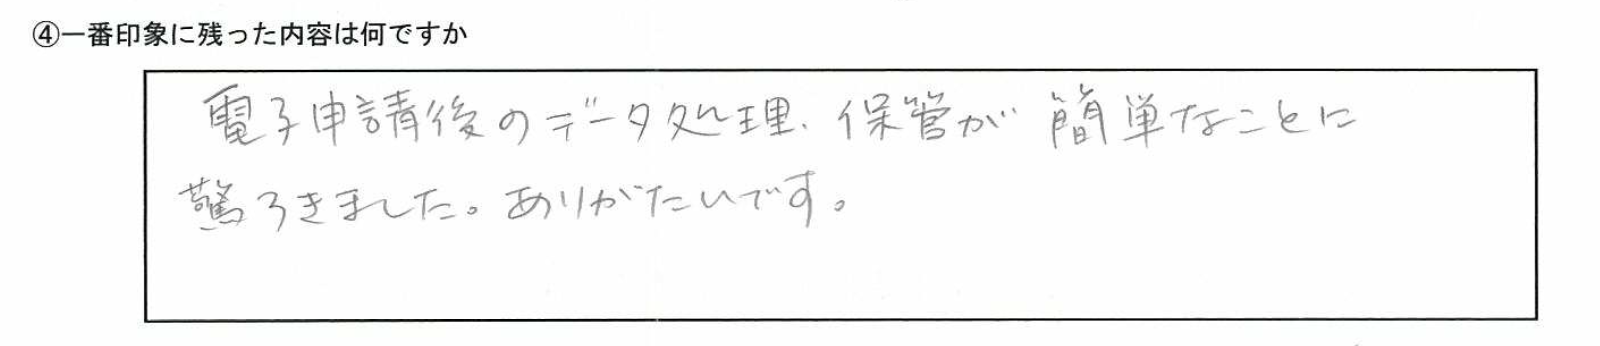 ④一番印象に残った内容は何ですか
電子申請後のデータ処理、保管が簡単なことに
驚ろきました。ありがたいです。